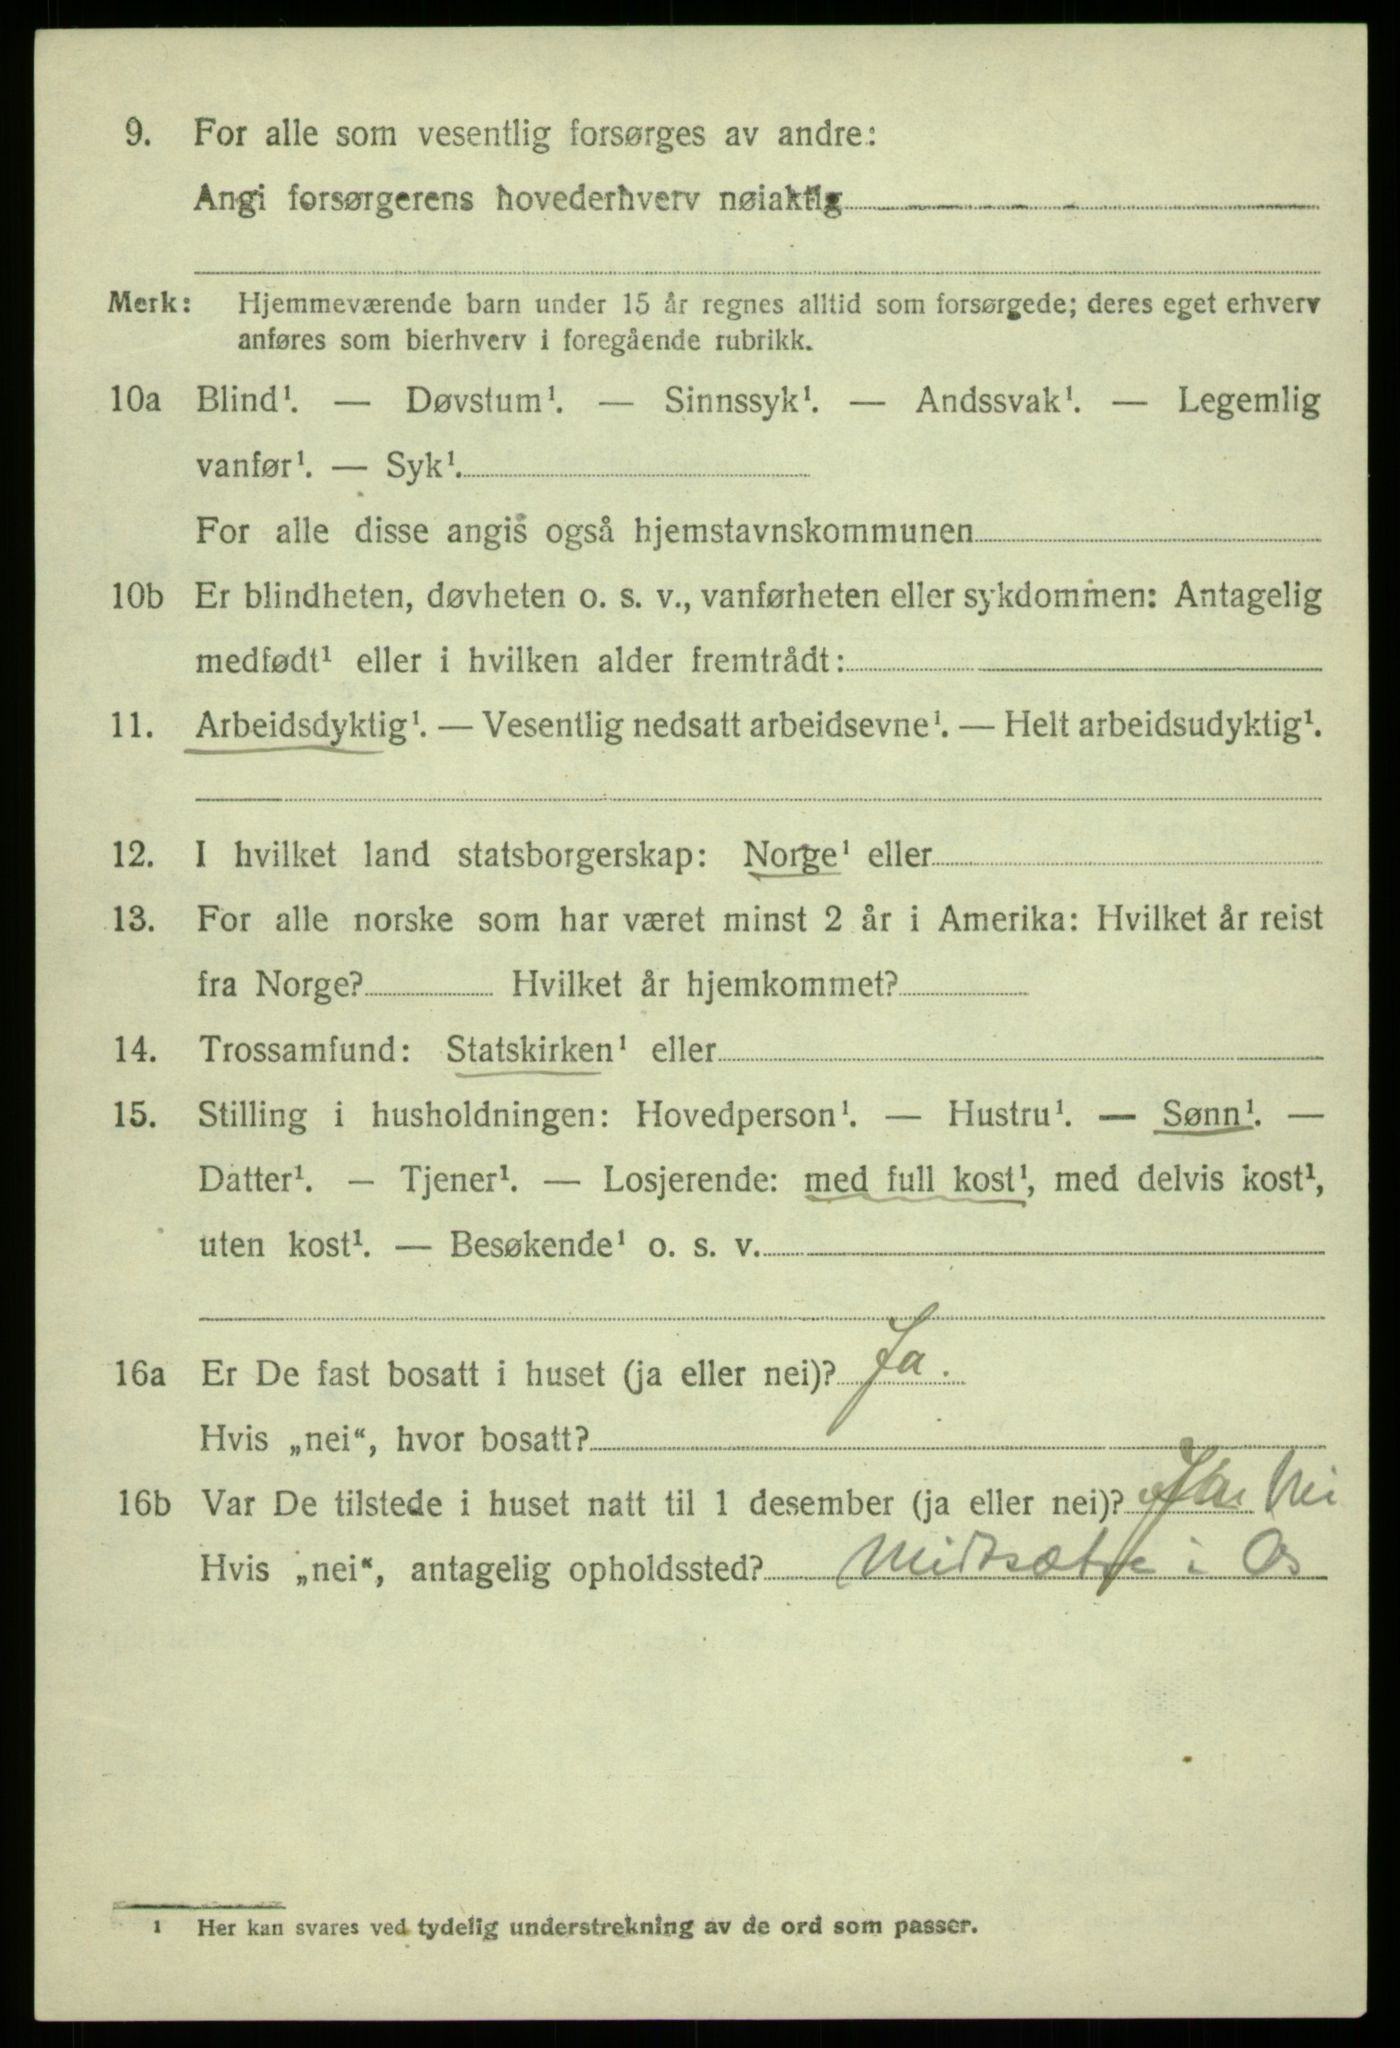 9. For alle som vesentlig forsørges av andre:
Angi forsørgerens hovederhverv nøiaktig
Merk: Hjemmeværende barn under 15 år regnes alltid som forsørgede; deres eget erhverv
anføres som bierhverv i foregående rubrikk.
10a Blind¹. — Døvstum¹. — Sinnssyk¹. — Andssvak¹. — Legemlig
vanfør¹. — Syk¹.
For alle disse angis også hjemstavnskommunen
10b Er blindheten, døvheten o. s. v., vanførheten eller sykdommen: Antagelig
medfødt¹ eller i hvilken alder fremtrådt:
11. Arbeidsdyktig¹. — Vesentlig nedsatt arbeidsevne¹. — Helt arbeidsudyktig¹.
12. I hvilket land statsborgerskap: Norge¹ eller
13. For alle norske som har været minst 2 år i Amerika: Hvilket år reist
fra Norge? Hvilket år hjemkommet?
14. Trossamfund: Statskirken¹ eller
15. Stilling i husholdningen: Hovedperson¹. — Hustru¹. — Sønn¹. —
Datter¹. — Tjener¹. — Losjerende: med full kost¹, med delvis kost¹,
uten kost¹. — Besøkende¹ o. s. v.
16a Er De fast bosatt i huset (ja eller nei)? Ja.
Hvis „nei“, hvor bosatt?
16b Var De tilstede i huset natt til 1 desember (ja eller nei)? Nei
Hvis „nei“, antagelig opholdssted? Midtsæter i Os
1 Her kan svares ved tydelig understrekning av de ord som passer.